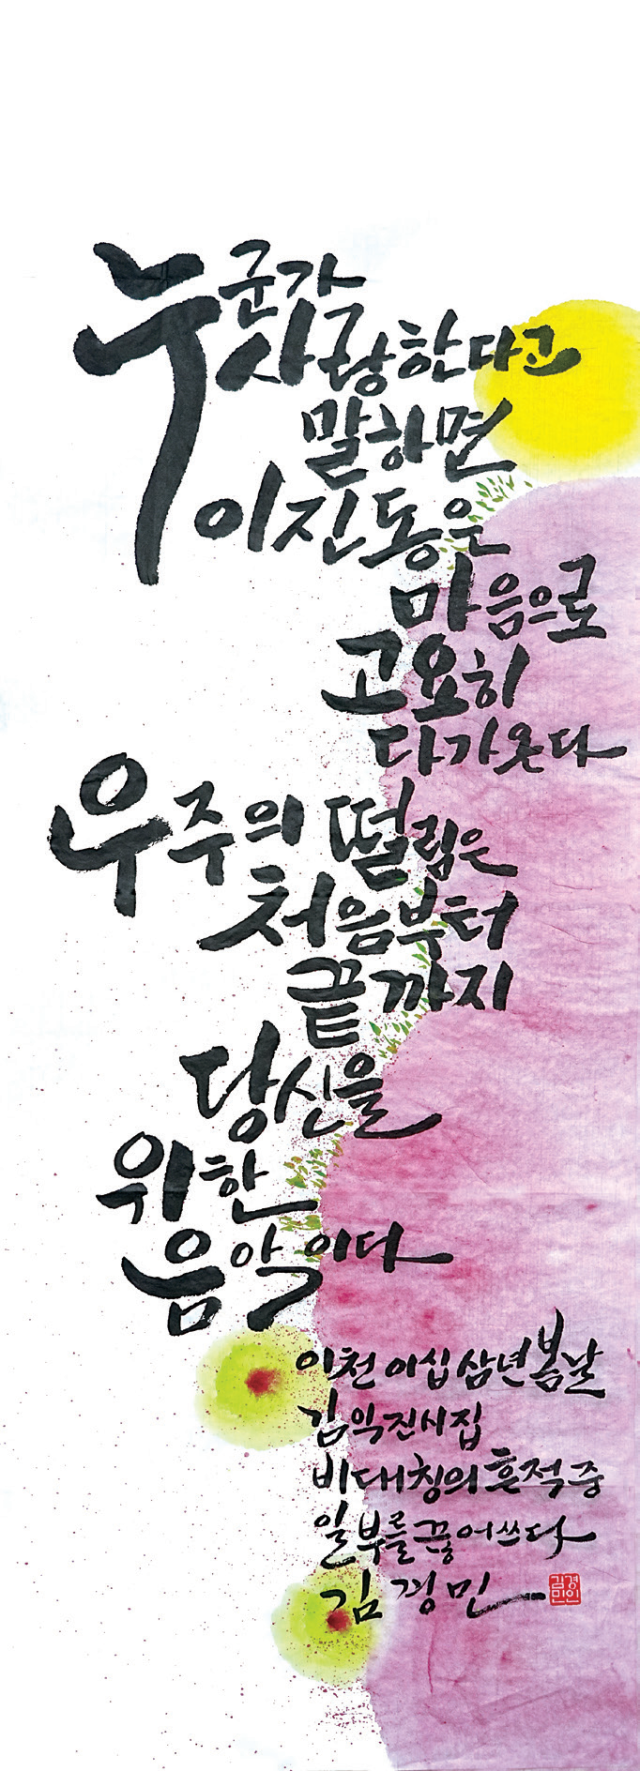 누군가
사랑한다고
말하면
이진동은
마음으로
고요히
다가온다
우주의 떨림은
처음부터
끝까지
당신을
위한
음악이다
이천 이십 삼년 봄날
김익진시집
비대칭의 흔적 중
일부를 끓어쓰다
김경민